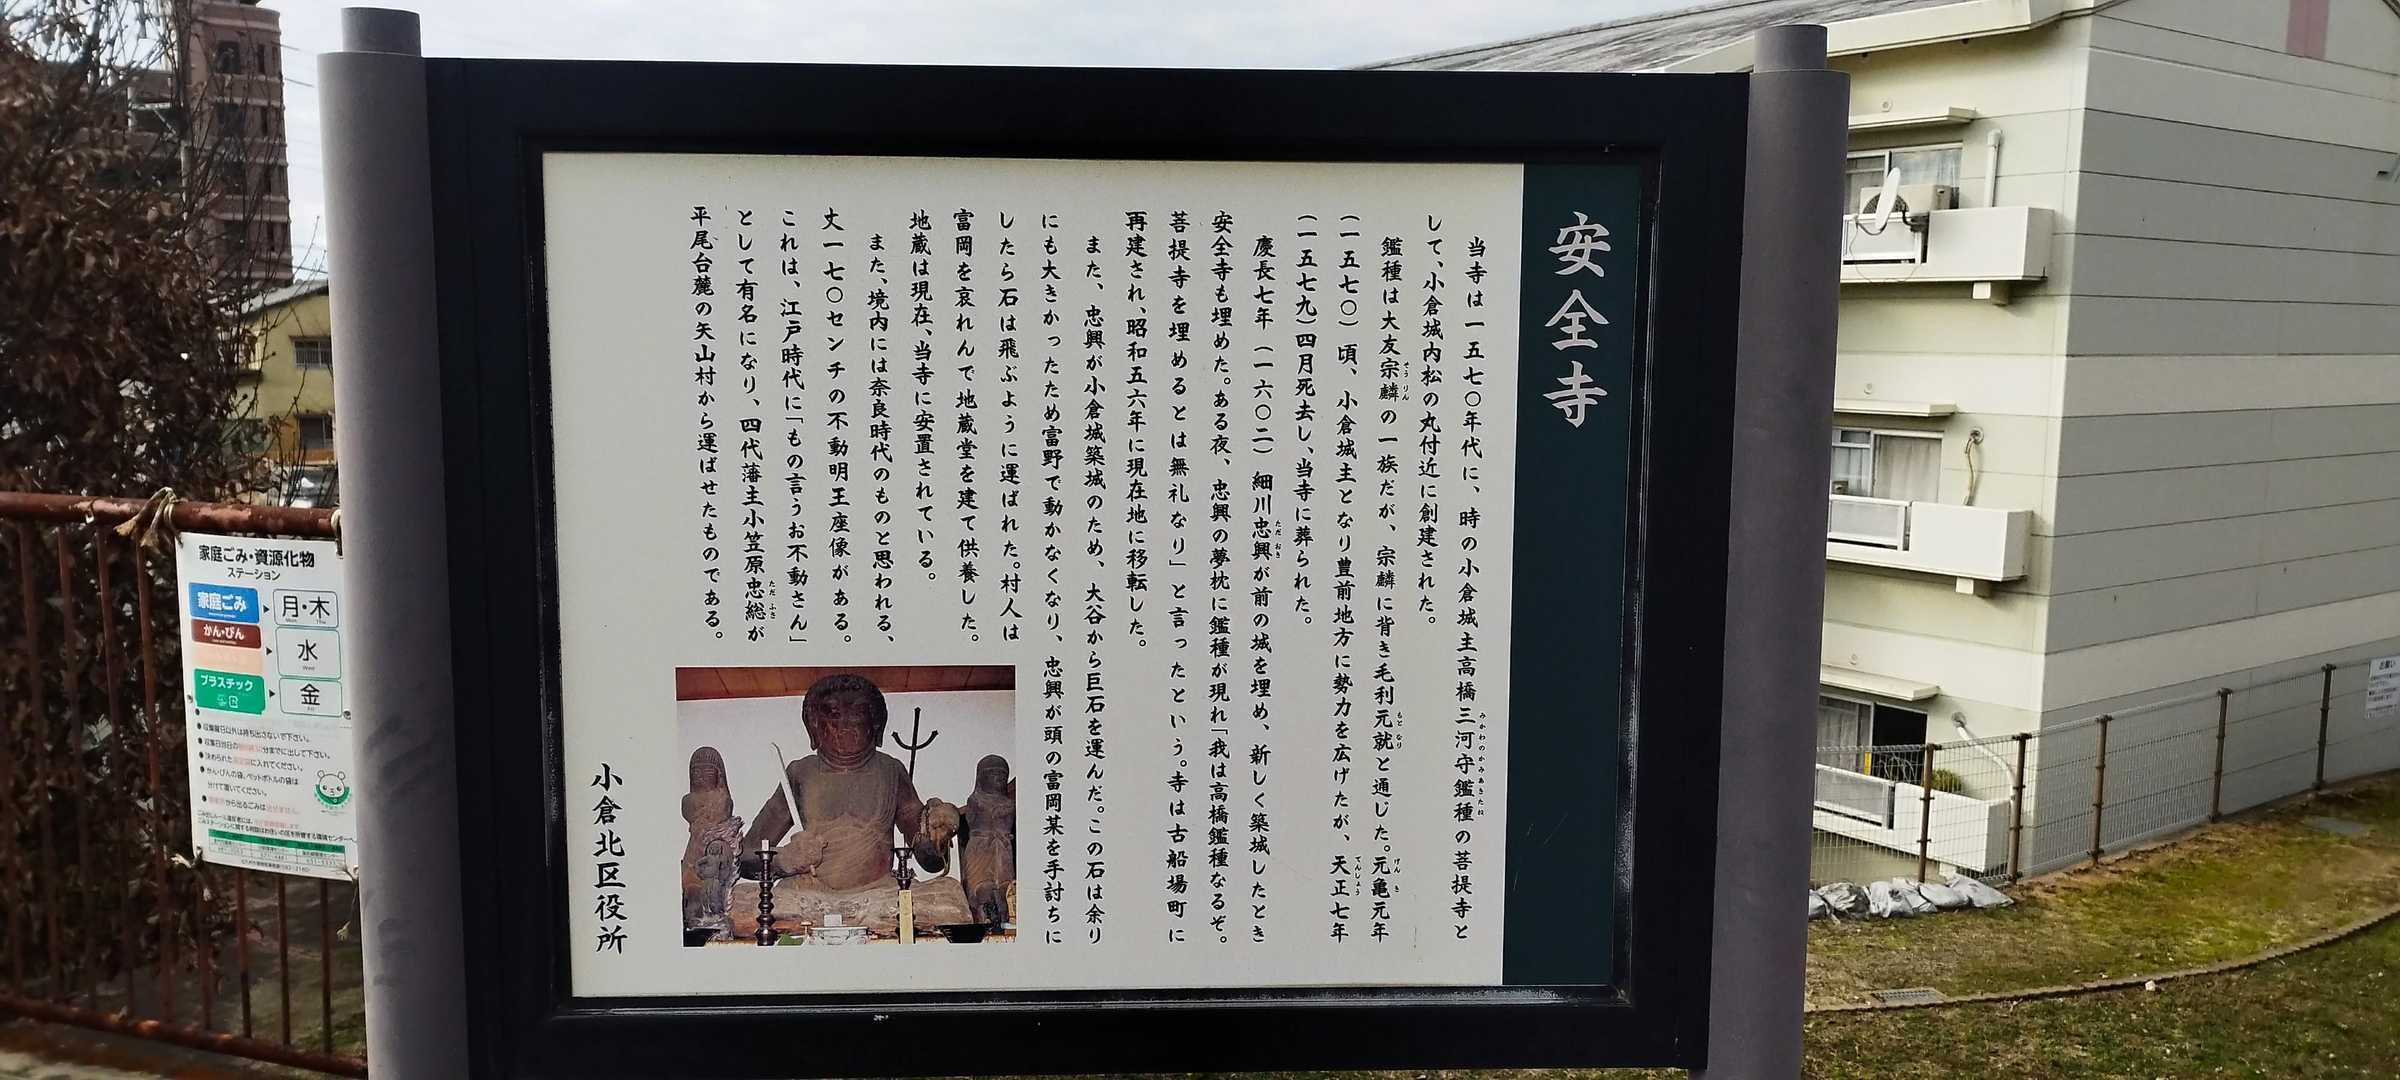 安全寺
当寺は一五七〇年代に、時の小倉城主高橋三河守鑑種の菩提寺と
みかわのかみあきたね
して、小倉城内松の丸付近に創建された。
鑑種は大友宗麟の一族だが、宗麟に背き毛利元就と通じた。元亀元年
そうりん
もとなり
げんき
(一五七〇)頃、小倉城主となり豊前地方に勢力を広げたが、天正七年
てんしょう
(一五七九)四月死去し、当寺に葬られた。
慶長七年(一六〇二)細川忠興が前の城を埋め、新しく築城したとき
ただおき
安全寺も埋めた。ある夜、忠興の夢枕に鑑種が現れ「我は高橋鑑種なるぞ。
菩提寺を埋めるとは無礼なり」と言ったという。寺は古船場町に
再建され、昭和五六年に現在地に移転した。
また、忠興が小倉城築城のため、大谷から巨石を運んだ。この石は余り
にも大きかったため富野で動かなくなり、忠興が頭の富岡某を手討ちに
したら石は飛ぶように運ばれた。村人は
富岡を哀れんで地蔵堂を建て供養した。
地蔵は現在、当寺に安置されている。
また、境内には奈良時代のものと思われる、
丈一七〇センチの不動明王座像がある。
これは、江戸時代に「もの言うお不動さん」
として有名になり、四代藩主小笠原忠総が
ただふさ
平尾台麓の矢山村から運ばせたものである。
小倉北区役所
家庭ごみ・資源化物
ステーション
家庭ごみ
月・木
Mon
Thu
かん・びん
水
Wed
プラスチック
金
Fri
●収集曜日以外は持ち出さないで下さい。
●かん・びんの袋、ペットボトルの袋は
分けて置いてください。
お願い